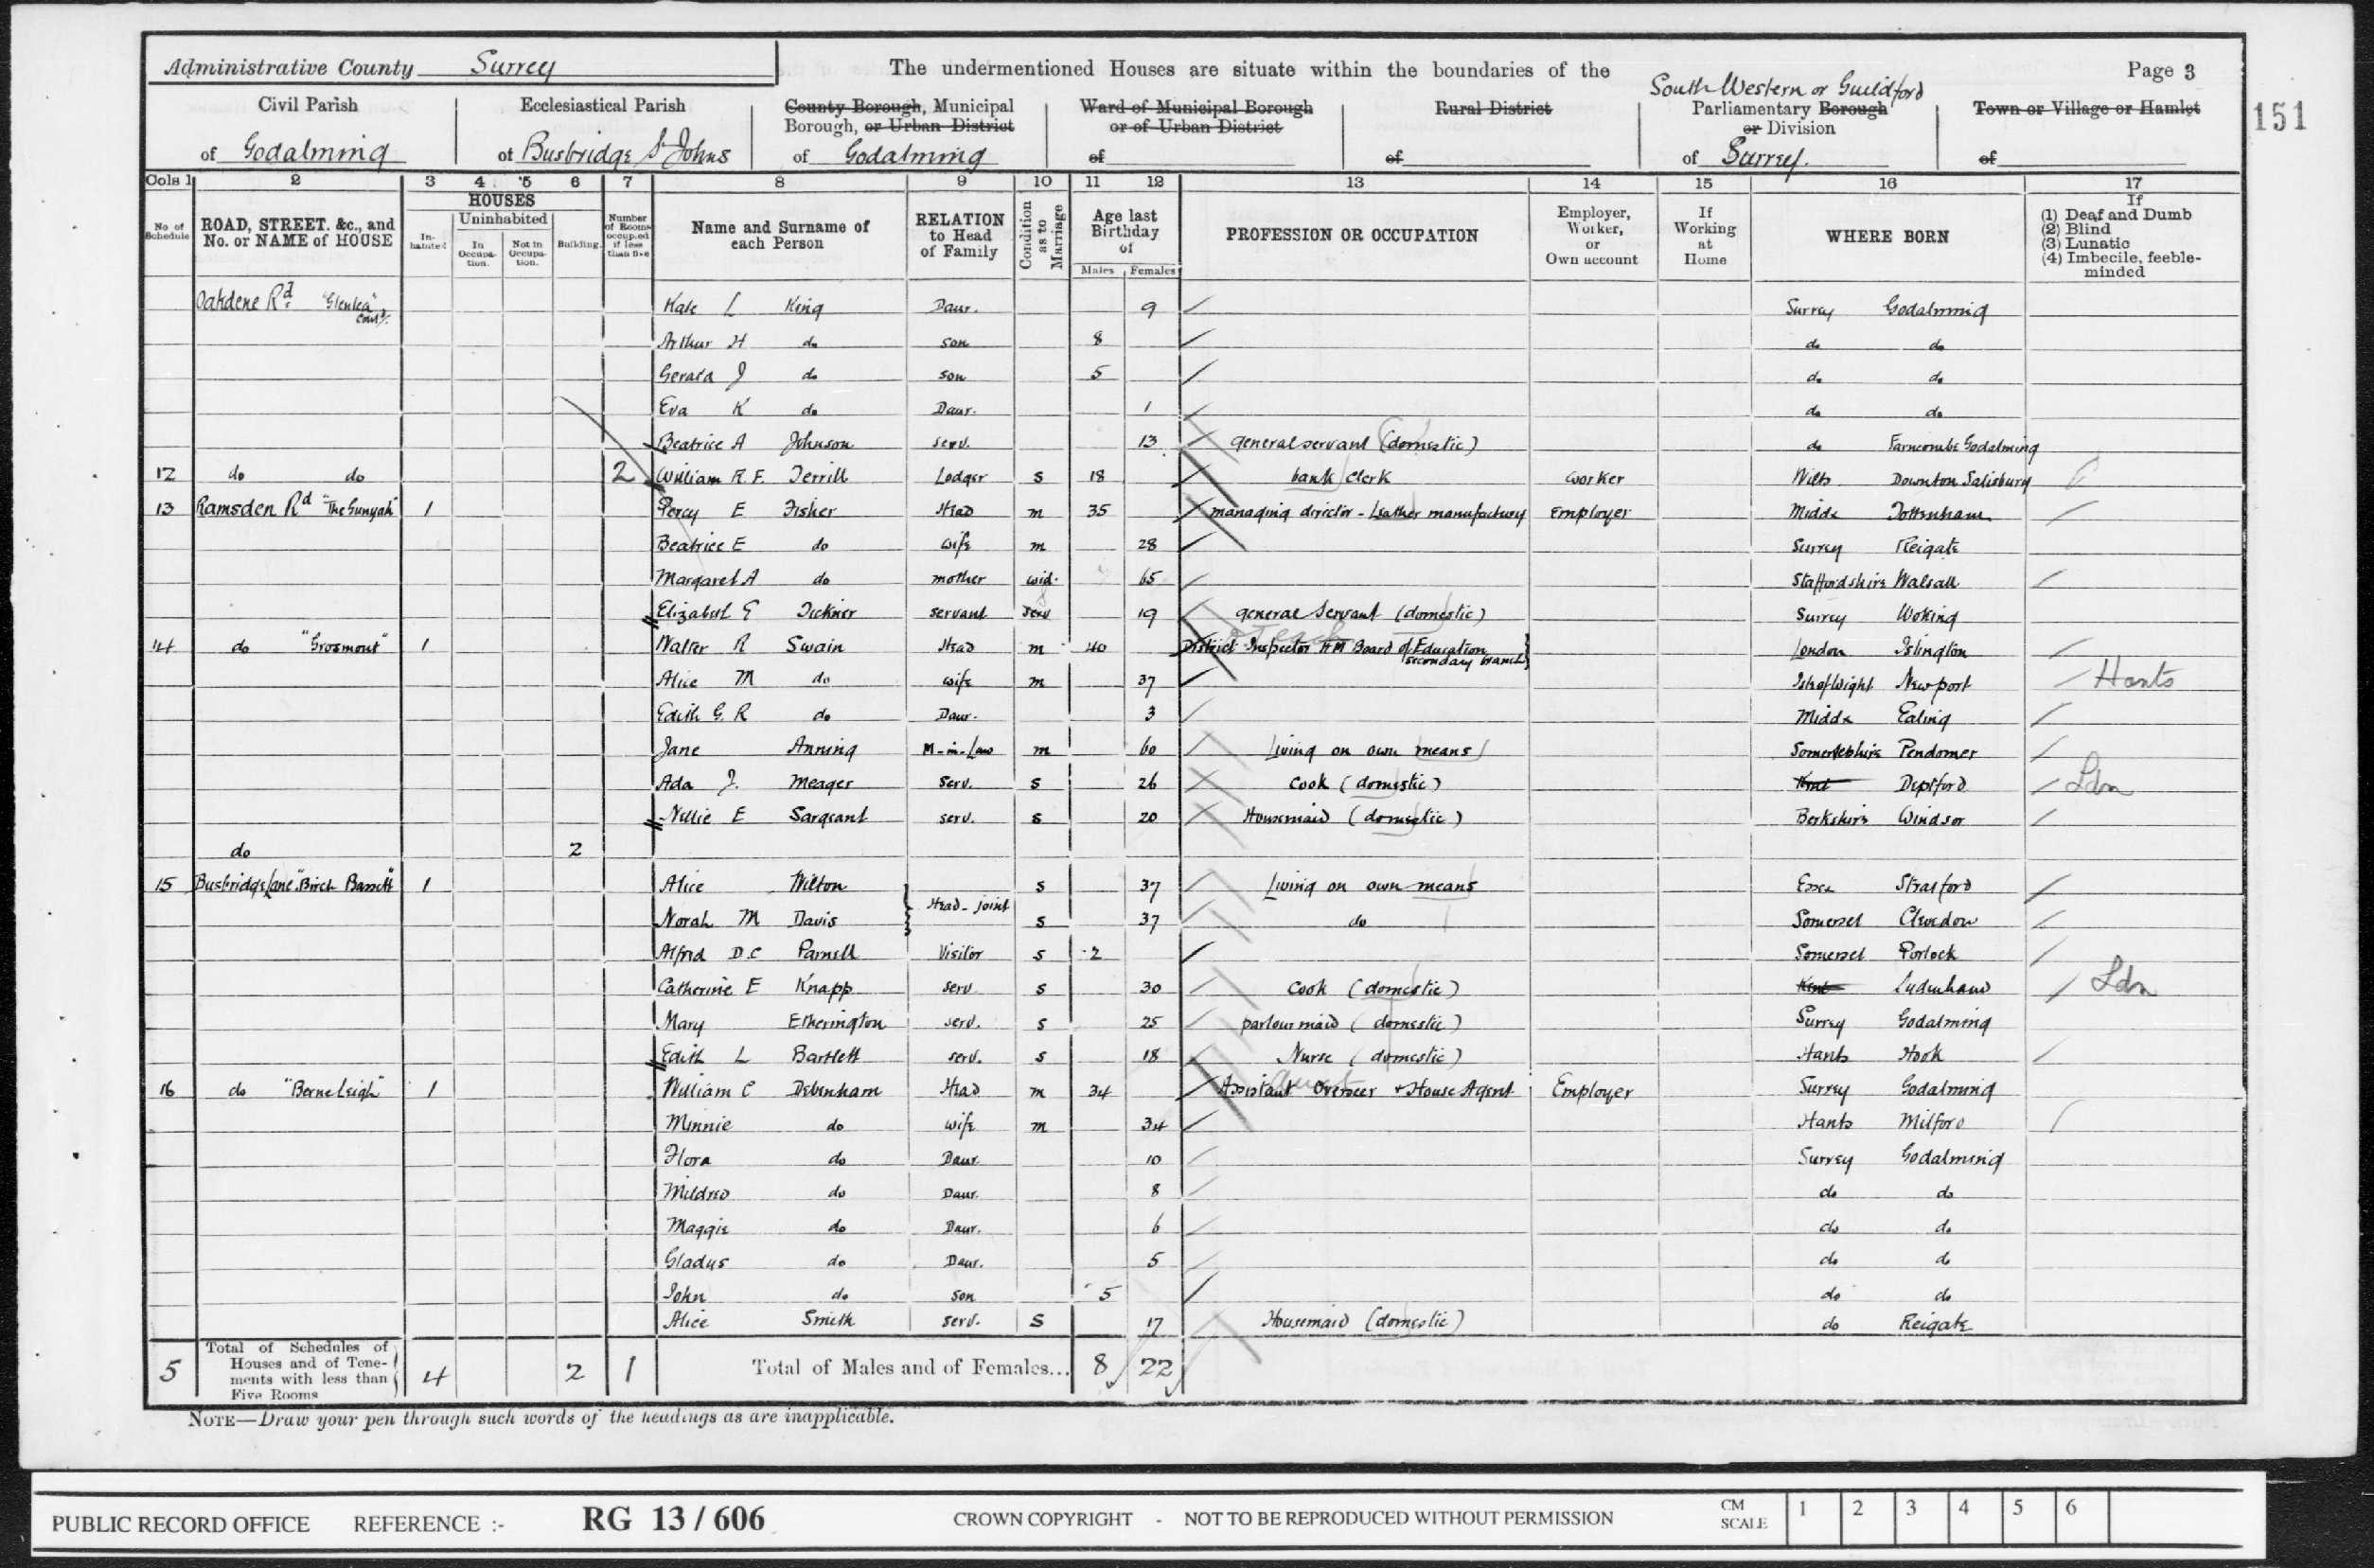 Administrative County Surrey
The undermentioned Houses are situate within the boundaries of the
Page 3
151
Civil Parish of Godalming
Ecclesiastical Parish of Busbridge St Johns
County Borough, Municipal Borough, or Urban District of Godalming
Ward of Municipal Borough or of Urban District of
Rural District of
South Western or Guildford
Parliamentary Borough or Division of Surrey.
Town or Village or Hamlet of
Cols 1 2 3 4 5 6 7 8 9 10 11 12 13 14 15 16 17
No of Schedule
ROAD, STREET. &c., and No. or NAME of HOUSE
HOUSES
In-habited
Uninhabited
In Occupa-tion.
Not in Occupa-tion.
Building.
Number of Rooms occupied if less than five
Name and Surname of each Person
RELATION to Head of Family
Condition as to Marriage
Age last Birthday of
Males Females
PROFESSION OR OCCUPATION
Employer, Worker, or Own account
If Working at Home
WHERE BORN
If
(1) Deaf and Dumb
(2) Blind
(3) Lunatic
(4) Imbecile, feeble-minded
Oakdene Rd "Glenlea" contd. Kate L King Daur. 9 Surrey Godalming
Arthur H do son 8 do do
Gerald J do son 5 do do
Eva K do Daur. 1 do do
Beatrice A Johnson serv. 13 general servant (domestic) do Farncombe Godalming
12 do do 2 William R. F. Terrill Lodger s 18 bank clerk worker Wilts Downton Salisbury
13 Ramsden Rd "The Gunyah" 1 Percy E Fisher Head m 35 managing director - Leather manufactory Employer Middx Tottenham
Beatrice E do wife m 28 Surrey Reigate
Margaret A do mother wid. 65 Staffordshire Walsall
Elizabeth G Tickner servant serv 19 general servant (domestic) Surrey Woking
14 do "Grosmont" 1 Walter R Swain Head m 40 District Inspector HM Board of Education secondary branch London Islington
Alice M do wife m 37 Isle of Wight Newport Hants
Edith G. R do Daur. 3 Middx Ealing
Jane Anning M-in-Law m 60 Living on own means Somersetshire Pendomer
Ada J. Meager serv. s 26 Cook (domestic) Kent Deptford Ldn
Nellie E Sargeant serv. s 20 Housemaid (domestic) Berkshire Windsor
do 2
15 Busbridge Lane "Birch Bassett" 1 Alice Wilton Head - joint s 37 Living on own means Essex Stratford
Norah M Davis s 37 do Somerset Clevedon
Alfred D.C Parnell Visitor s 2 Somerset Porlock
Catherine E Knapp serv s 30 Cook (domestic) Kent Ldn
Mary Etherington serv. s 25 parlourmaid (domestic) Surrey Godalming
Edith L Bartlett serv. s 18 Nurse (domestic) Hants Hook
16 do "Berne Leigh" 1 William C Debenham Head m 34 Assistant Overseer & House Agent Employer Surrey Godalming
Minnie do wife m 34 Hants Milford
Flora do Daur. 10 Surrey Godalming
Mildred do Daur. 8 do do
Maggie do Daur. 6 do do
Gladys do Daur. 5 do do
John do son 5 do do
Alice Smith serv. S 17 Housemaid (domestic) do Reigate
5 Total of Schedules of Houses and of Tene-ments with less than Five Rooms 4 2 1 Total of Males and of Females... 8 22
NOTE—Draw your pen through such words of the headings as are inapplicable.
PUBLIC RECORD OFFICE REFERENCE :- RG 13/606 CROWN COPYRIGHT - NOT TO BE REPRODUCED WITHOUT PERMISSION CM SCALE 1 2 3 4 5 6